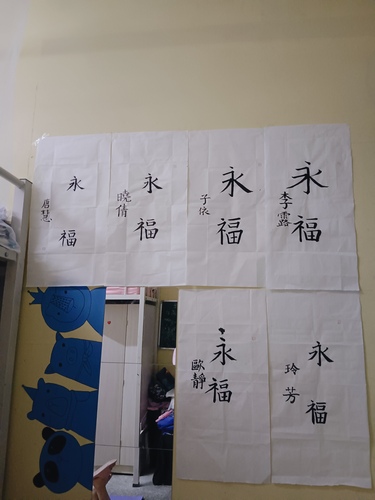 永福
慧
永福
曉倩
永福
子依
永福
李露
永福
歐靜
永福
玲芳